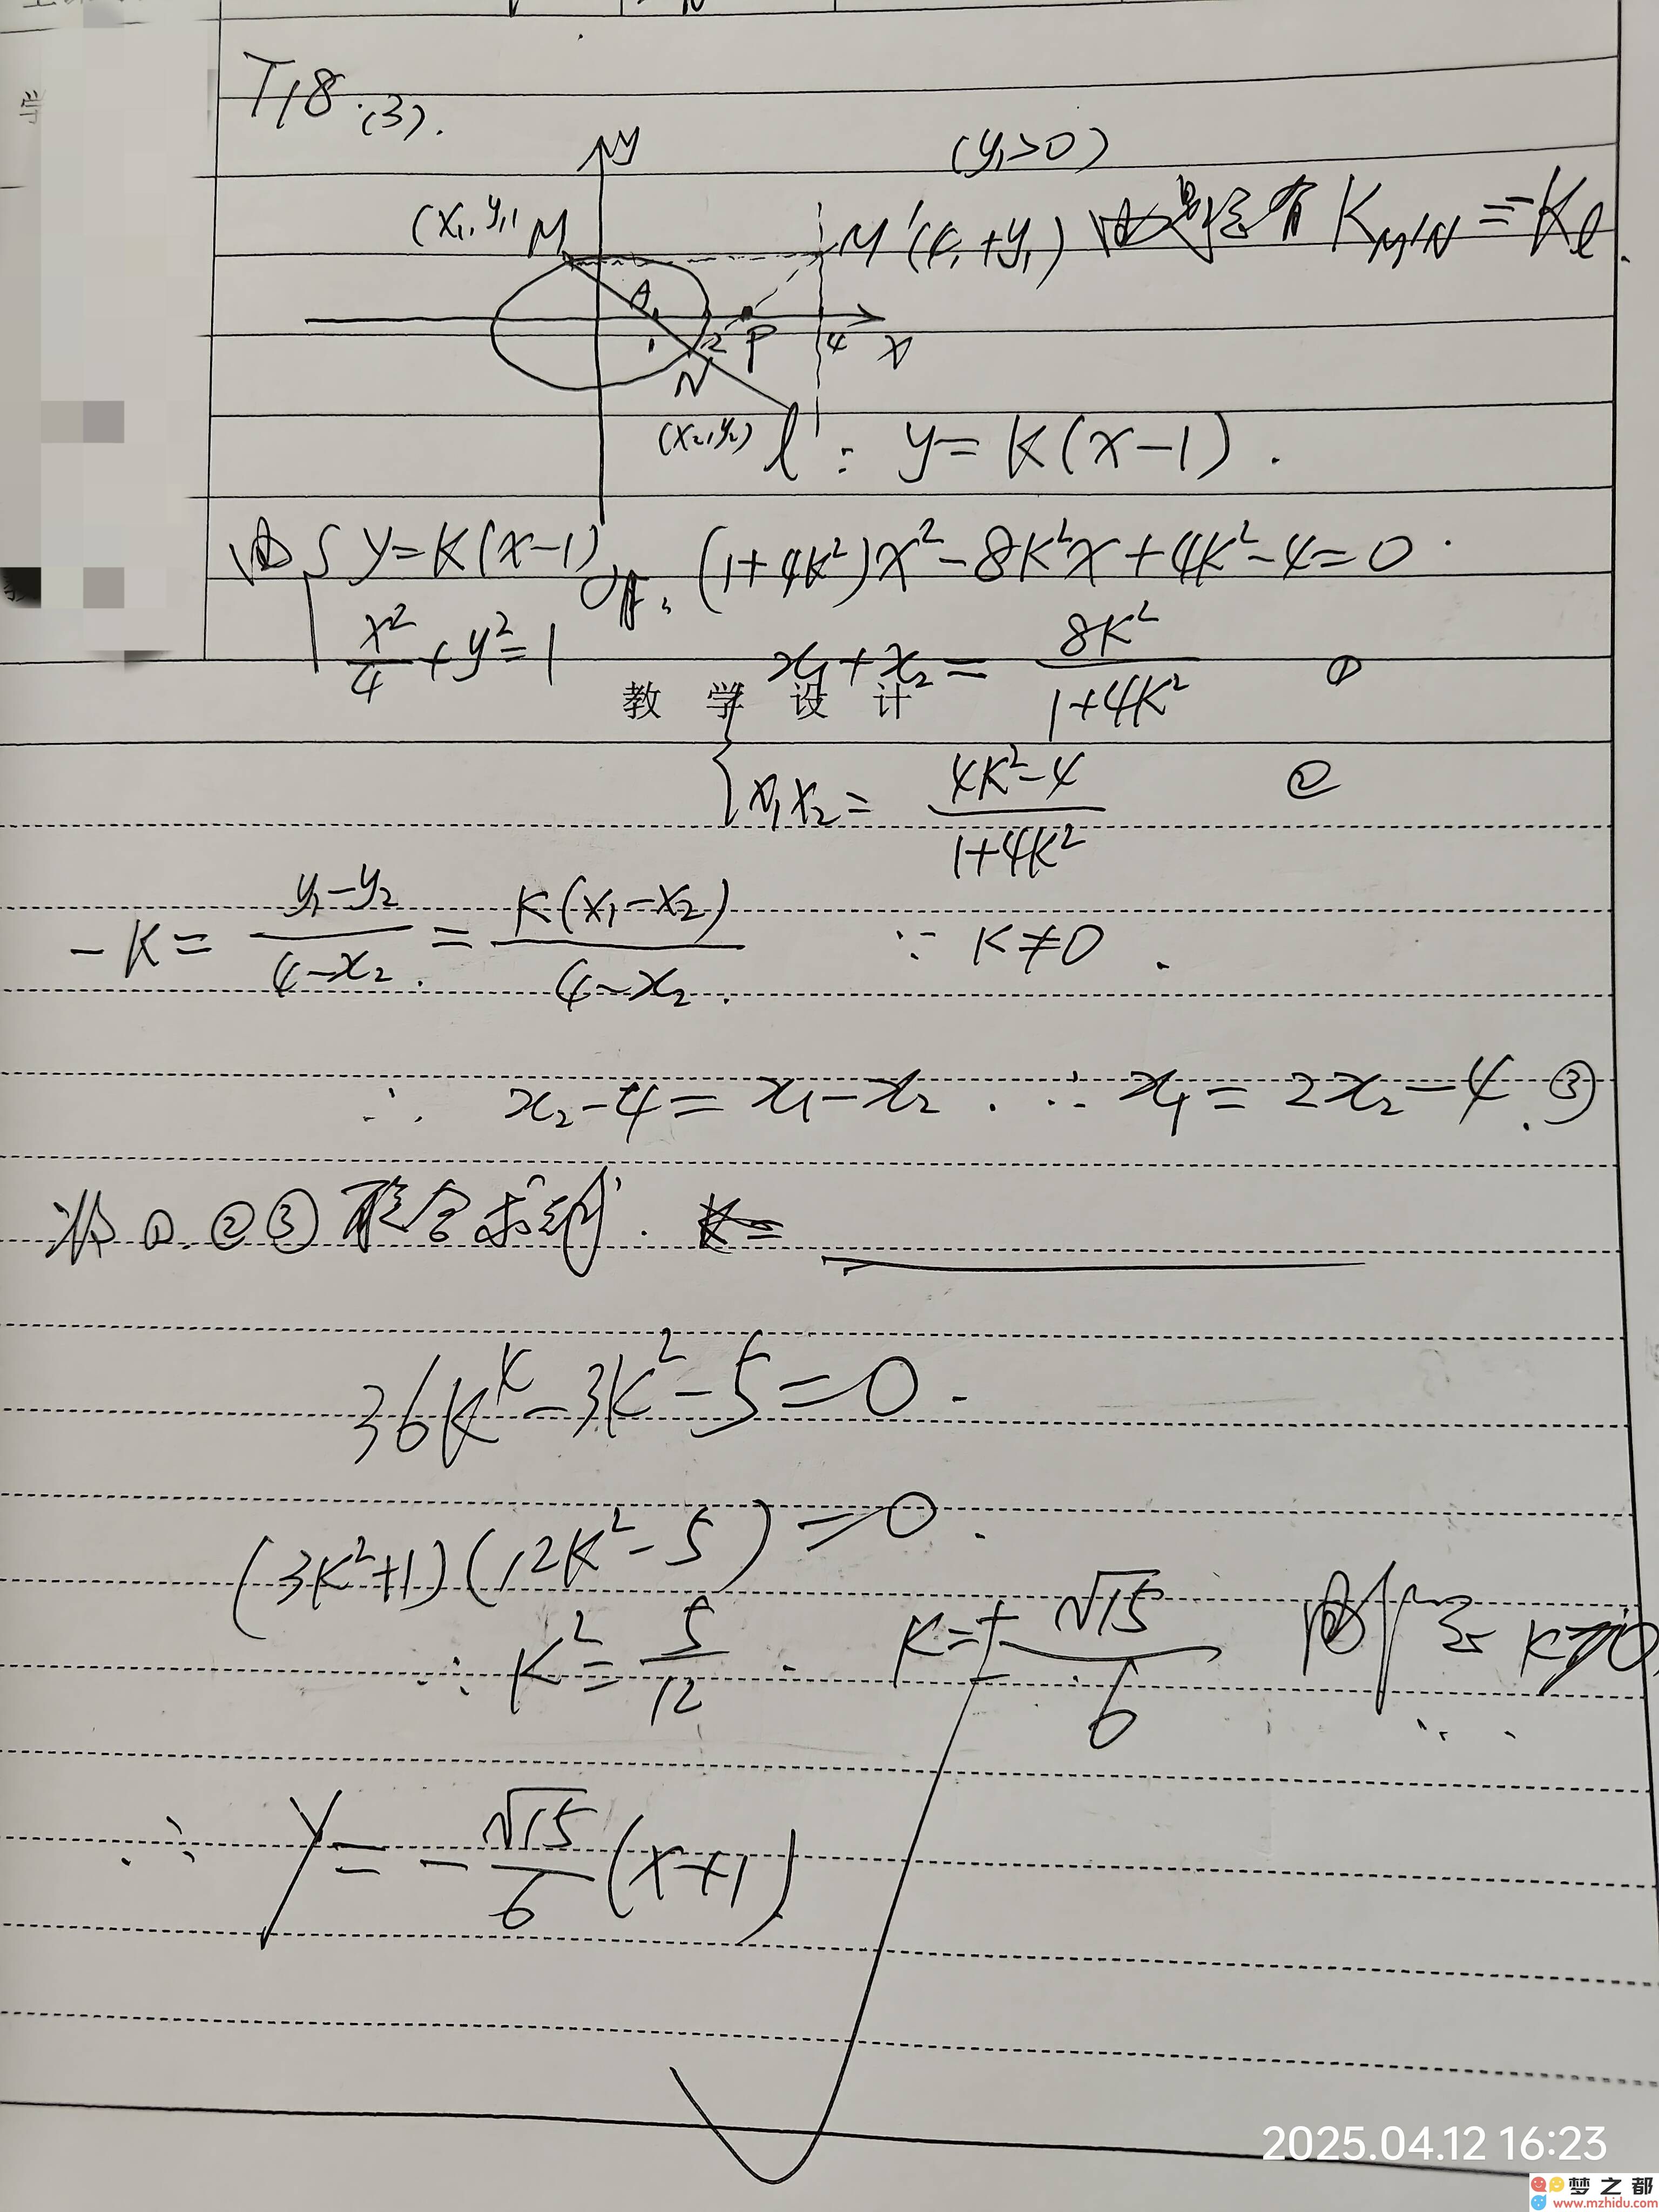 学
T18.(3).
y
(y₁>0)
(x₁,y₁) M
M'(4,+y₁) 由题意有 K_{M'N}=-K_l.
A
1
2
P
4
x
N
(x₂,y₂)
l: y=K(x-1).
由{y=K(x-1)
x²/4+y²=1
得, (1+4K²)x²-8K²x+4K²-4=0.
x₁+x₂=8K²/(1+4K²) ①
教 学 设 计
x₁x₂=(4K²-4)/(1+4K²) ②
-K=(y₁-y₂)/(4-x₂)=K(x₁-x₂)/(4-x₂) ∵K≠0.
∴ x₂-4=x₁-x₂. ∴ x₁=2x₂-4.③
将①.②③联合求得. K=
36K⁴-3K²-5=0.
(3K²+1)(12K²-5)=0.
∴ K²=5/12. K=±√15/6
∴ y=-√15/6(x+1)
2025.04.12 16:23
梦之都
www.mzhidu.com